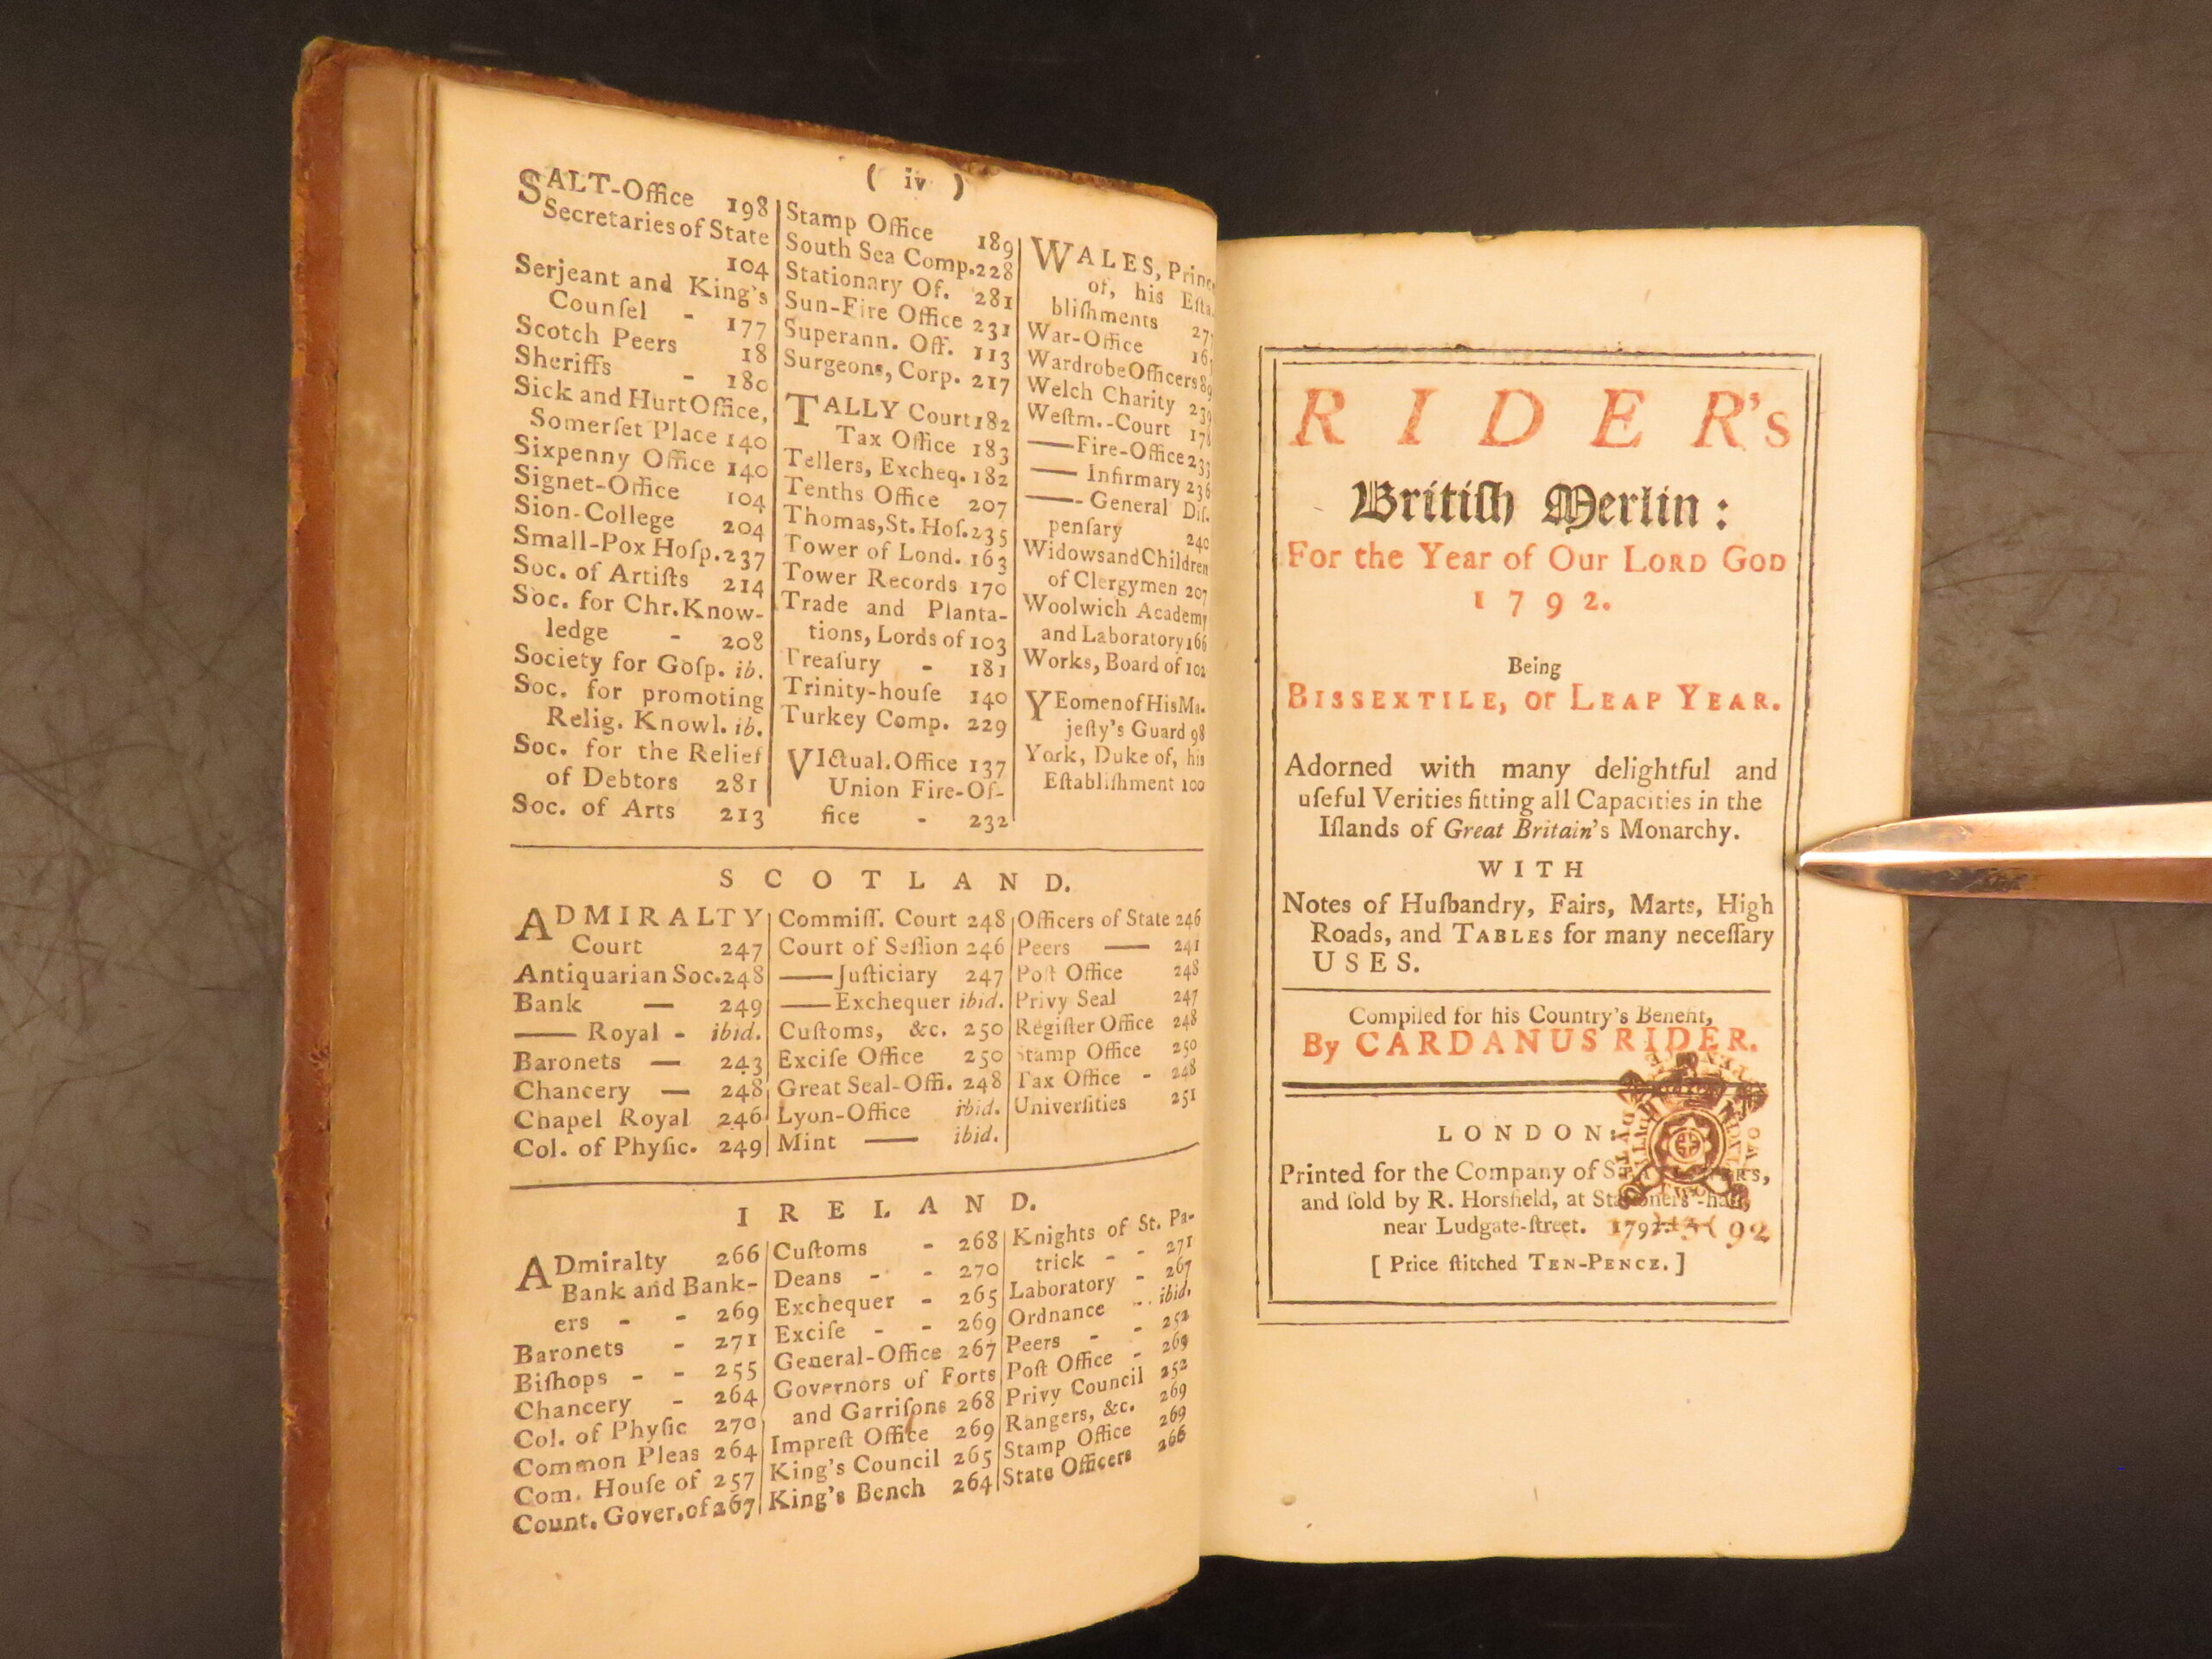 ( iv )
SALT-Office 198
Secretaries of State
104
Serjeant and King's
Counſel - 177
Scotch Peers 18
Sheriffs - 180
Sick and Hurt Office,
Somerſet Place 140
Sixpenny Office 140
Signet-Office 104
Sion-College 204
Small-Pox Hoſp. 237
Soc. of Artiſts 214
Soc. for Chr. Know-
ledge - 208
Society for Goſp. ib.
Soc. for promoting
Relig. Knowl. ib.
Soc. for the Relief
of Debtors 281
Soc. of Arts 213
Stamp Office 189
South Sea Comp. 228
Stationary Of. 281
Sun-Fire Office 231
Superann. Off. 113
Surgeons, Corp. 217
TALLY Court 182
Tax Office 183
Tellers, Excheq. 182
Tenths Office 207
Thomas, St. Hoſ. 235
Tower of Lond. 163
Tower Records 170
Trade and Planta-
tions, Lords of 103
Treaſury - 181
Trinity-houſe 140
Turkey Comp. 229
VIctual. Office 137
Union Fire-Of-
fice - 232
WALES, Princ
of, his Eſta-
bliſhments 27
War-Office 16
Wardrobe Officers 89
Welch Charity 239
Weſtm.-Court 178
—— Fire-Office 233
—— Infirmary 236
—— General Diſ-
penſary 240
Widows and Children
of Clergymen 207
Woolwich Academy
and Laboratory 166
Works, Board of 102
YEomen of His Ma-
jeſty's Guard 98
York, Duke of, his
Eſtabliſhment 100
SCOTLAND.
ADMIRALTY
Court 247
Antiquarian Soc. 248
Bank — 249
—— Royal - ibid.
Baronets — 243
Chancery — 248
Chapel Royal 246
Col. of Phyſic. 249
Commiſſ. Court 248
Court of Seſſion 246
—— Juſticiary 247
—— Exchequer ibid.
Cuſtoms, &c. 250
Exciſe Office 250
Great Seal-Offi. 248
Lyon-Office ibid.
Mint —— ibid.
Officers of State 246
Peers —— 241
Poſt Office 248
Privy Seal 247
Regiſter Office 248
Stamp Office 250
Tax Office - 248
Univerſities 251
IRELAND.
ADmiralty 266
Bank and Bank-
ers - - 269
Baronets - 271
Biſhops - - 255
Chancery - 264
Col. of Phyſic 270
Common Pleas 264
Com. Houſe of 257
Count. Gover. of 267
Cuſtoms - 268
Deans - - 270
Exchequer - 265
Exciſe - - 269
General-Office 267
Governors of Forts
and Garriſons 268
Impreſt Office 269
King's Council 265
King's Bench 264
Knights of St. Pa-
trick - - 271
Laboratory - 267
Ordnance - - ibid.
Peers - - 252
Poſt Office - 269
Privy Council 252
Rangers, &c. 269
Stamp Office 269
State Officers 266
RIDER's
Britiſh Merlin:
For the Year of Our LORD GOD
1792.
Being
BISSEXTILE, or LEAP YEAR.
Adorned with many delightful and
uſeful Verities fitting all Capacities in the
Iſlands of Great Britain's Monarchy.
WITH
Notes of Huſbandry, Fairs, Marts, High
Roads, and TABLES for many neceſſary
USES.
Compiled for his Country's Benefit,
By CARDANUS RIDER.
LONDON:
Printed for the Company of STATIONERS,
and ſold by R. Horsfield, at Stationers'-hall,
near Ludgate-ſtreet. 1792. 92
[ Price ſtitched TEN-PENCE. ]